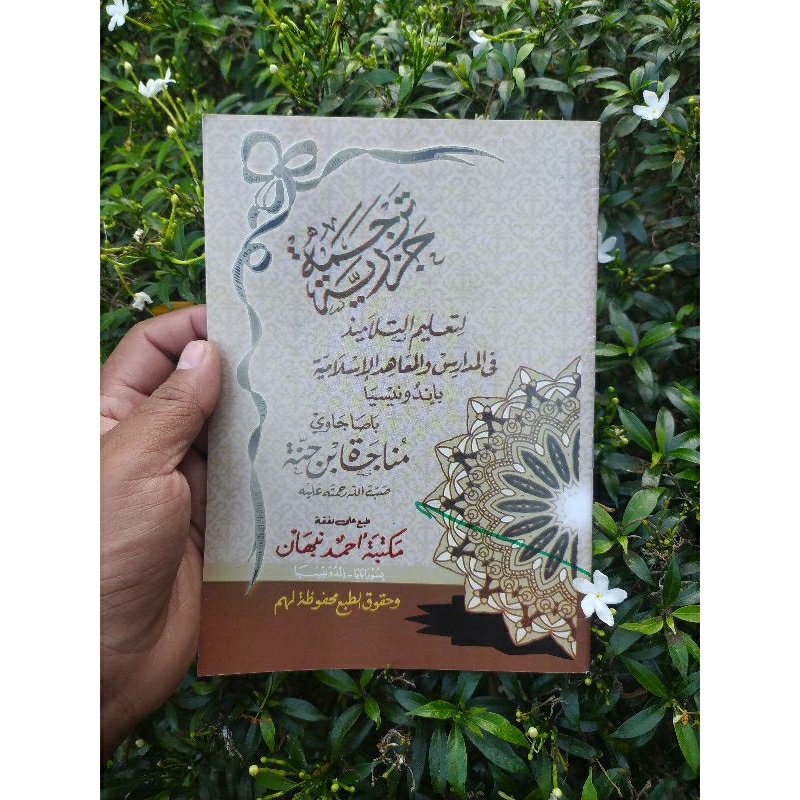 ترجمة
جزرية
لتعليم التلاميذ
فى المدارس والمعاهد الإسلامية
بإندونيسيا
باصا جاوي
مناجاة ابن حنة
صبة الله رحمة عليه
طبع على نفقة
مكتبة احمد نبهان
سورابايا - اندونيسيا
وحقوق الطبع محفوظة لهم